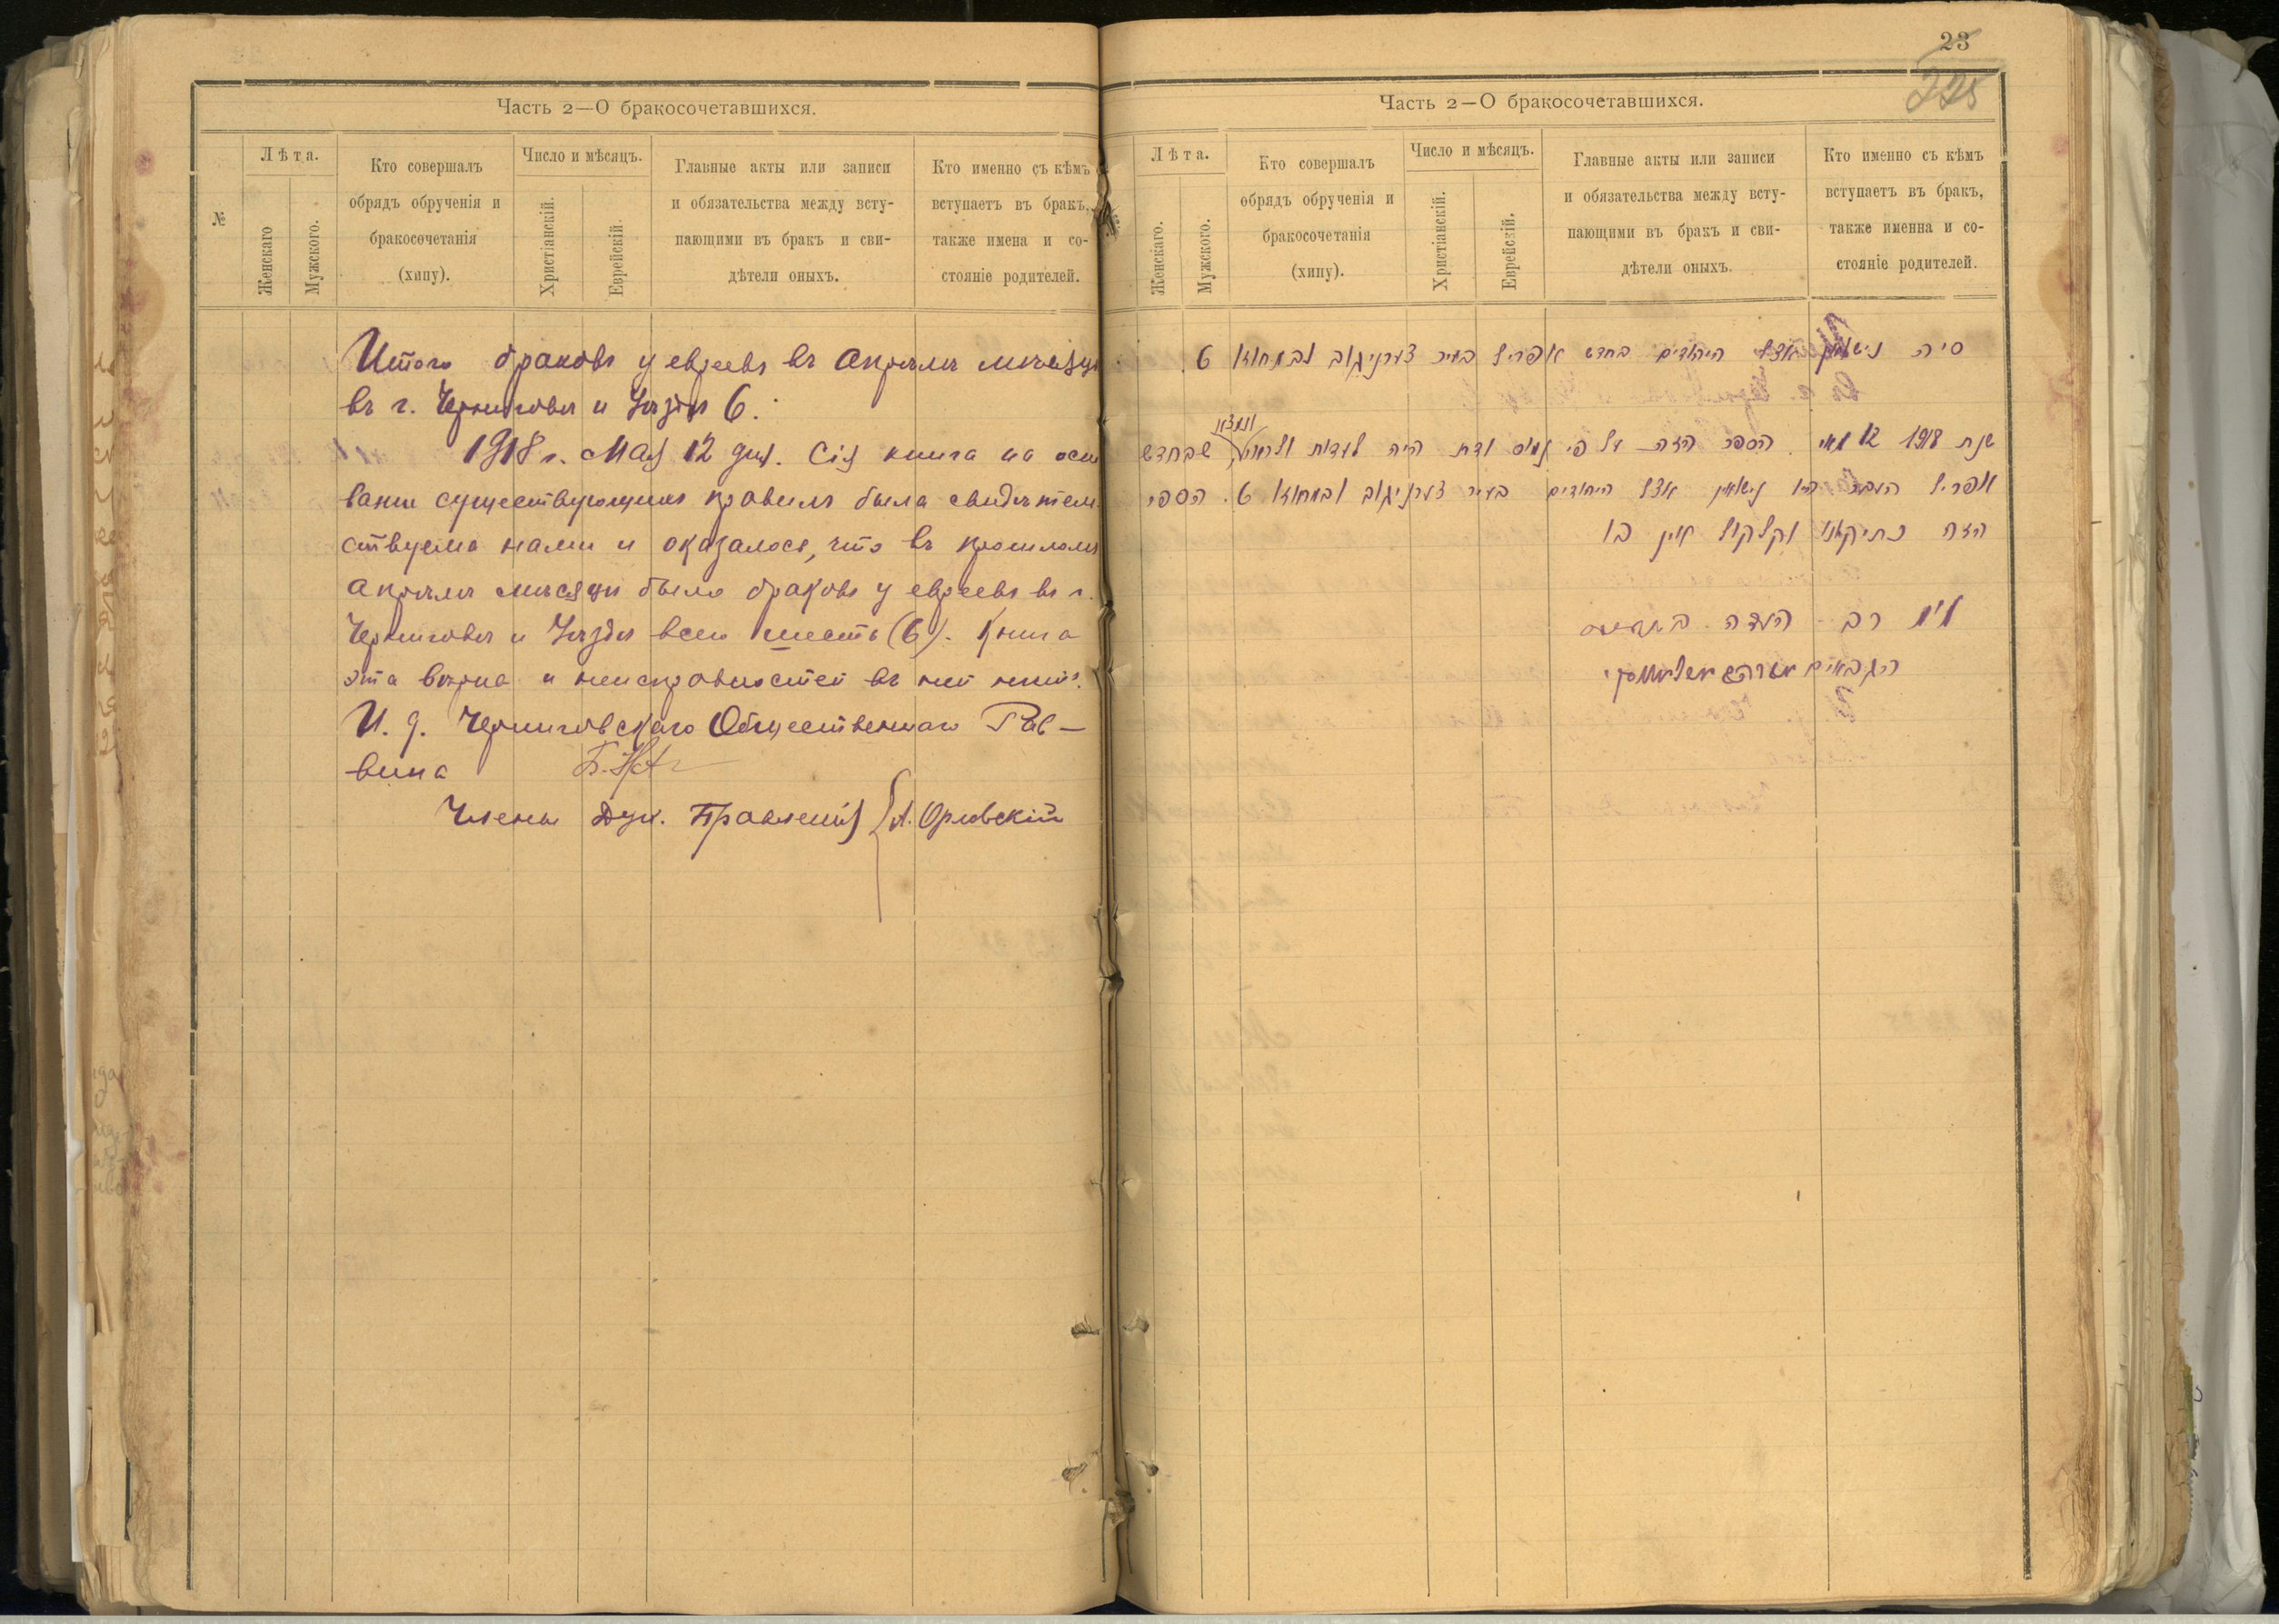 Часть 2—О бракосочетавшихся.
№
Лѣта.
Женскаго
Мужского.
Кто совершалъ
обрядъ обрученія и
бракосочетанія
(хипу).
Число и мѣсяцъ.
Христіанскій.
Еврейскій.
Главные акты или записи
и обязательства между всту-
пающими въ бракъ и сви-
дѣтели оныхъ.
Кто именно съ кѣмъ
вступаетъ въ бракъ,
также имена и со-
стояніе родителей.
Итого браковъ у евреевъ въ Апрѣлѣ мѣсяцѣ
въ г. Черниговѣ и Уѣздѣ 6.
1918 г. Мая 12 дня. Сія книга на осно
ваніи существующихъ правилъ была свидѣтель
ствуема нами и оказалось, что въ прошломъ
Апрѣлѣ мѣсяцѣ было браковъ у евреевъ въ г.
Черниговѣ и Уѣздѣ всего шесть (6). Книга
эта вѣрна и неисправностей въ ней нѣтъ.
И. д. Черниговскаго Общественнаго Рав-
вина
Члены Дух. Правленія { А. Орловскій
23
225
Часть 2—О бракосочетавшихся.
Лѣта.
Женскаго.
Мужского.
Кто совершалъ
обрядъ обрученія и
бракосочетанія
(хипу).
Число и мѣсяцъ.
Христіанскій.
Еврейскій.
Главные акты или записи
и обязательства между всту-
пающими въ бракъ и сви-
дѣтели оныхъ.
Кто именно съ кѣмъ
вступаетъ въ бракъ,
также именна и со-
стояніе родителей.
היהודים בחדש אפריל בעיר צערניגוב ובמחוזו 6
ונמצא
שנת 1918 12 מאי הספר הזה על פי ודת היה לעדות שבחדש
אפריל היו נישואין אצל היהודים בעיר צערניגוב ובמחוזו 6. הספר
הזה וקלקול אין בו
רב העדה
הגבאים